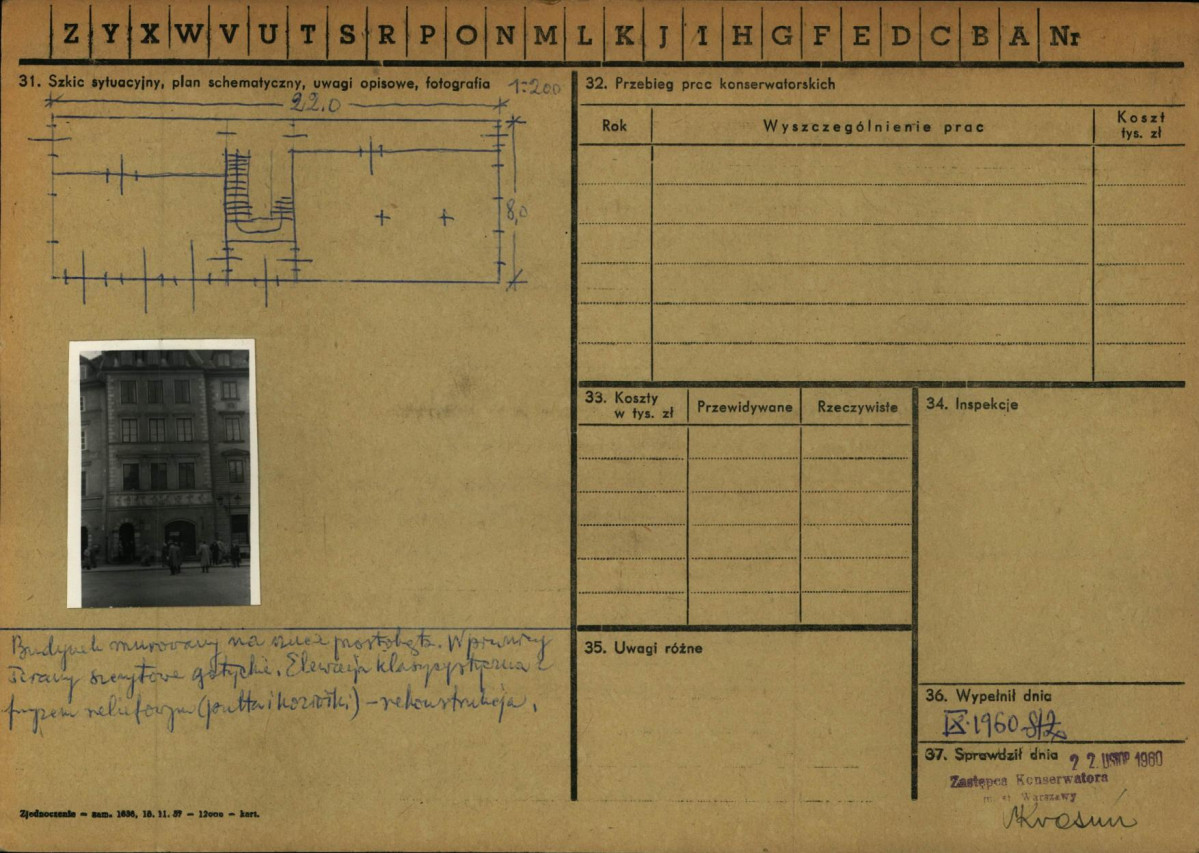 Z Y X W V U T S R P O N M L K J I H G F E D C B A Nr
31. Szkic sytuacyjny, plan schematyczny, uwagi opisowe, fotografia 1:200
22,0
8,0
Budynek murowany na rzucie prostokąta. W piwnicy
ściany szczytowe gotyckie. Elewacja klasycystyczna z
fryzem reliefowym (putta i koziołki) – rekonstrukcja.
Zjednoczenie – zam. 1636, 18. 11. 57 – 12000 – kart.
32. Przebieg prac konserwatorskich
Rok Wyszczególnienie prac Koszt tys. zł
33. Koszty w tys. zł Przewidywane Rzeczywiste
34. Inspekcje
35. Uwagi różne
36. Wypełnił dnia
IX.1960
37. Sprawdził dnia 22. LISTOP 1960
Zastępca Konserwatora
m. st. Warszawy